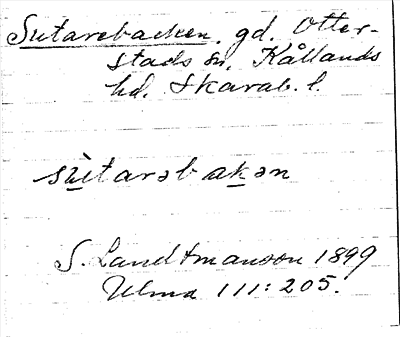 Sutarebacken, gd. Otter-
stads sn, Kållands
hd. Skarab. l.
sù̲tarəbak̲ən
S. Landtmanson 1899
Ulma 111: 205.